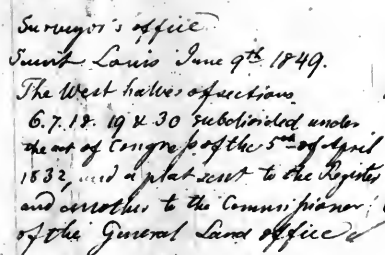 Surveyor's office
Saint Louis June 9th 1849.
The West halves of sections
6. 7. 18. 19 & 30 subdivided under
the act of Congress of the 5th of April
1832, and a plat sent to the Register
and another to the Commissioner
of the General Land office